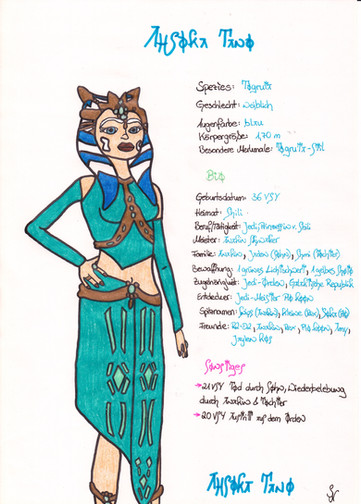 Ahsoka Tano
Spezies: Togruta
Geschlecht: weiblich
Augenfarbe: blau
Körpergröße: 1,70 m
Besondere Merkmale:
Bio
Geburtsdatum: 36 VSY
Heimat: Shili
Berufstätigkeit: Jedi
Meister: Anakin Skywalker
Familie: Anakin, (Sohn),
Bewaffnung: 1 grünes Lichtschwert, 1 gelbes Shoto
Zugehörigkeit: Jedi-Orden, Galaktische Republik
Entdecker: Jedi-Meister Plo Koon
Spitznamen: (Anakin), (Rex),
Freunde: R2-D2, Anakin, Rex, Plo Koon,
Sonstiges
→ 21 VSY Tod durch Sohn, Wiederbelebung
durch Anakin & Tochter
→ 20 VSY aus dem Orden
Ahsoka Tano